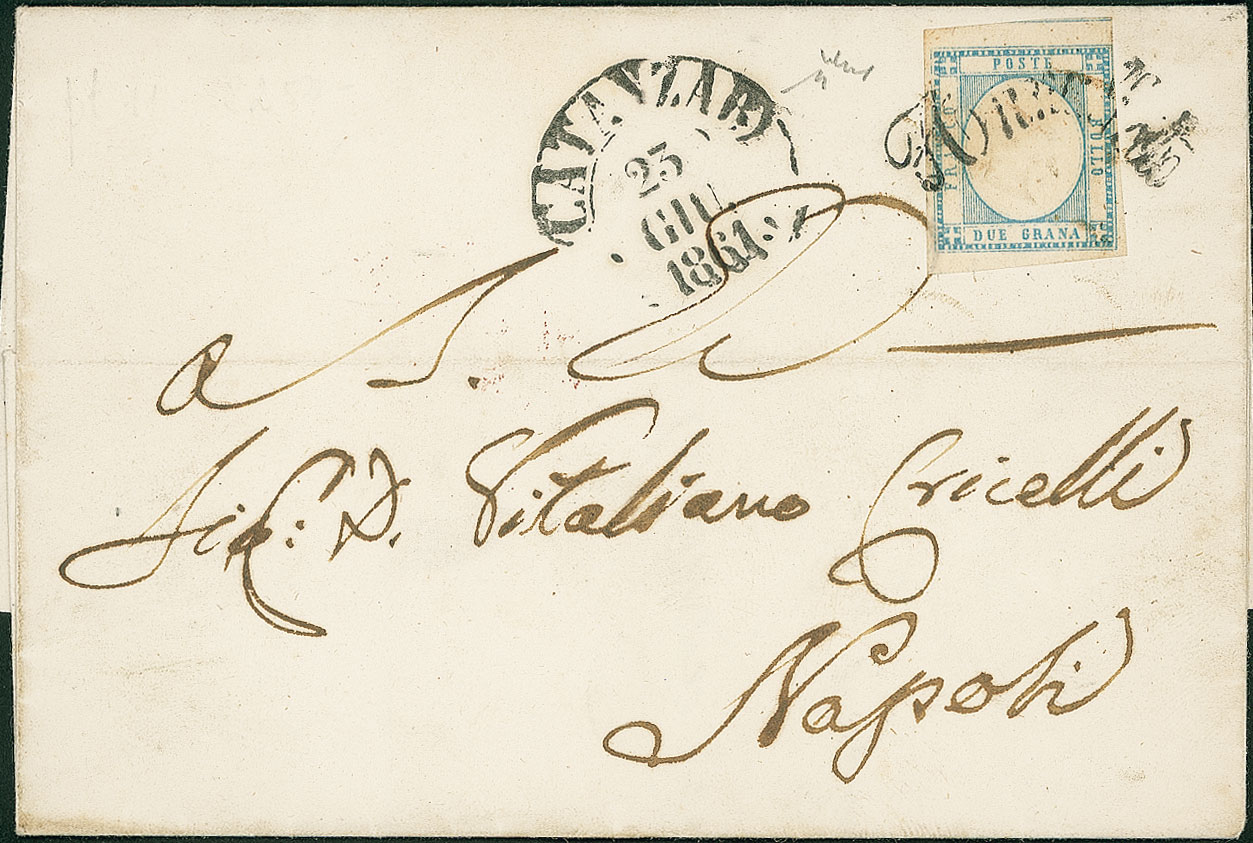 CATANZARO
23
GIU
1861
POSTE
FRANCO
BOLLO
DUE GRANA
a S. E.
Sig: D. Vitaliano Cricelli
Napoli